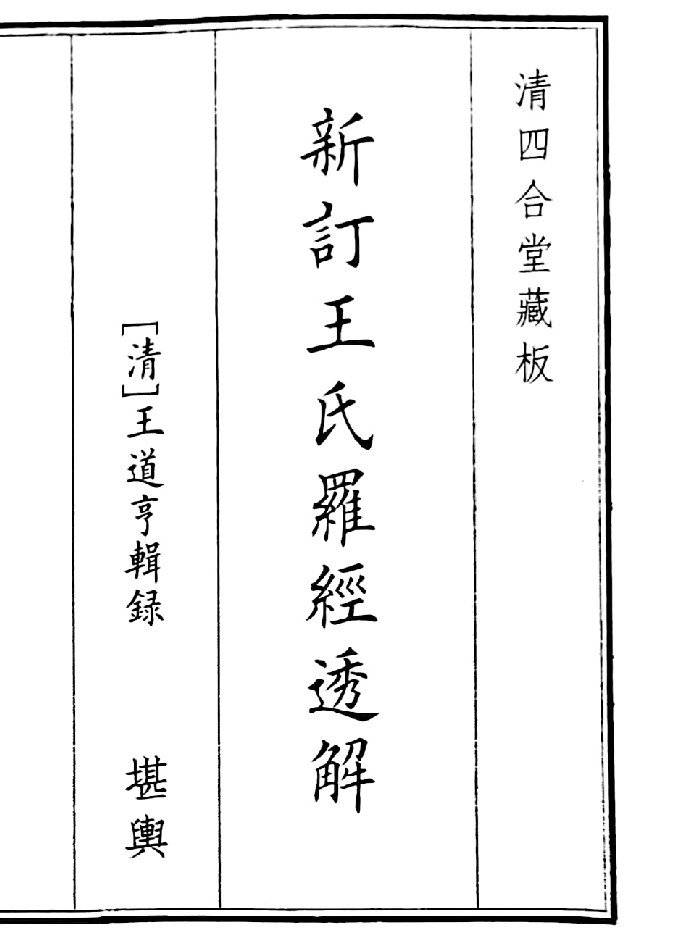 清四合堂藏板
新訂王氏羅經透解
［清］王道亨輯録
堪輿